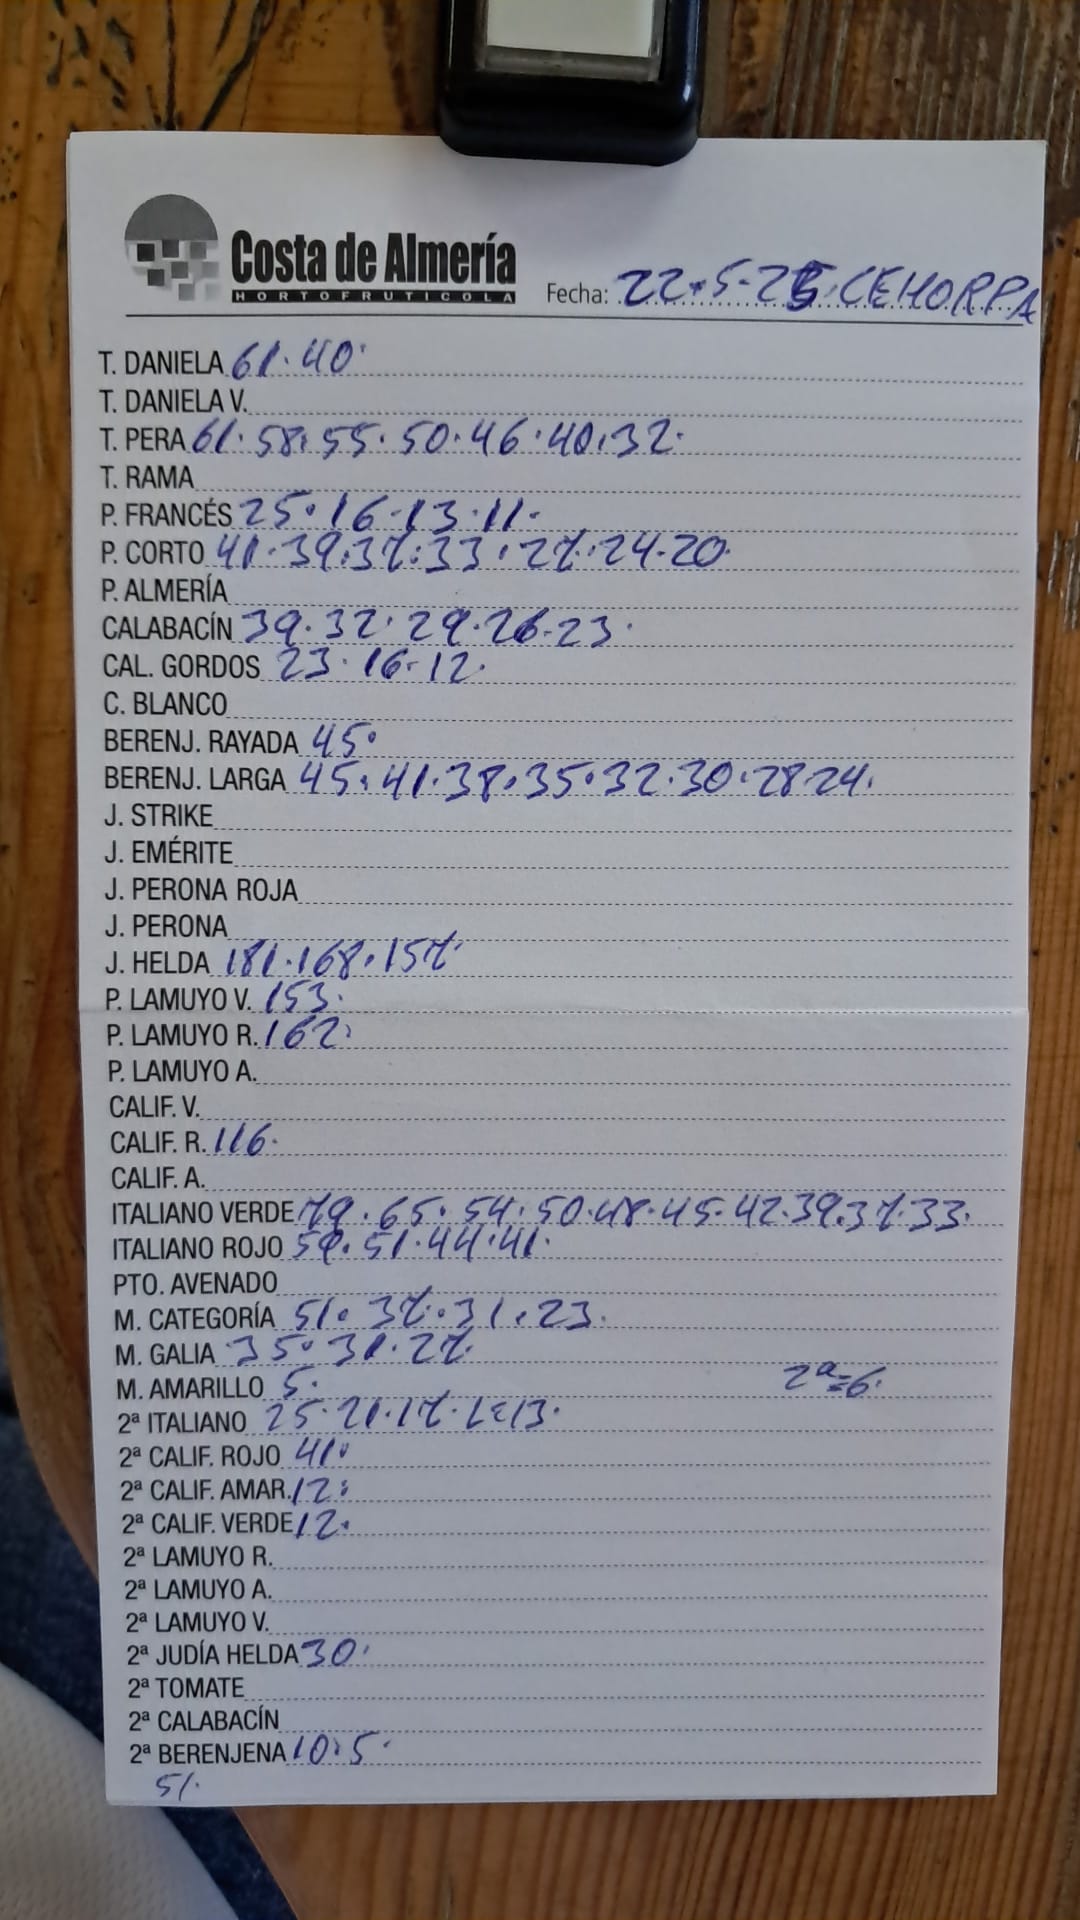 Costa de Almería
HORTOFRUTICOLA
Fecha: 22-5-25 CEHORPA
T. DANIELA 61. 40.
T. DANIELA V.
T. PERA 61. 58. 55. 50. 46. 40. 32.
T. RAMA
P. FRANCÉS 25. 16. 13. 11.
P. CORTO 41. 39. 37. 33. 27. 24. 20.
P. ALMERÍA
CALABACÍN 39. 32. 29. 26. 23.
CAL. GORDOS 23. 16. 12.
C. BLANCO
BERENJ. RAYADA 45.
BERENJ. LARGA 45. 41. 38. 35. 32. 30. 28. 24.
J. STRIKE
J. EMÉRITE
J. PERONA ROJA
J. PERONA
J. HELDA 181. 168. 157.
P. LAMUYO V. 153.
P. LAMUYO R. 162.
P. LAMUYO A.
CALIF. V.
CALIF. R. 116.
CALIF. A.
ITALIANO VERDE 79. 65. 54. 50. 48. 45. 42. 39. 37. 33.
ITALIANO ROJO 51. 44. 41.
PTO. AVENADO
M. CATEGORÍA 51. 37. 31. 23.
M. GALIA 35. 31. 27.
M. AMARILLO 5. 2ª=6.
2ª ITALIANO 25. 21. 17. 13.
2ª CALIF. ROJO 41.
2ª CALIF. AMAR. 12.
2ª CALIF. VERDE 12.
2ª LAMUYO R.
2ª LAMUYO A.
2ª LAMUYO V.
2ª JUDÍA HELDA 30.
2ª TOMATE
2ª CALABACÍN
2ª BERENJENA 10. 5.